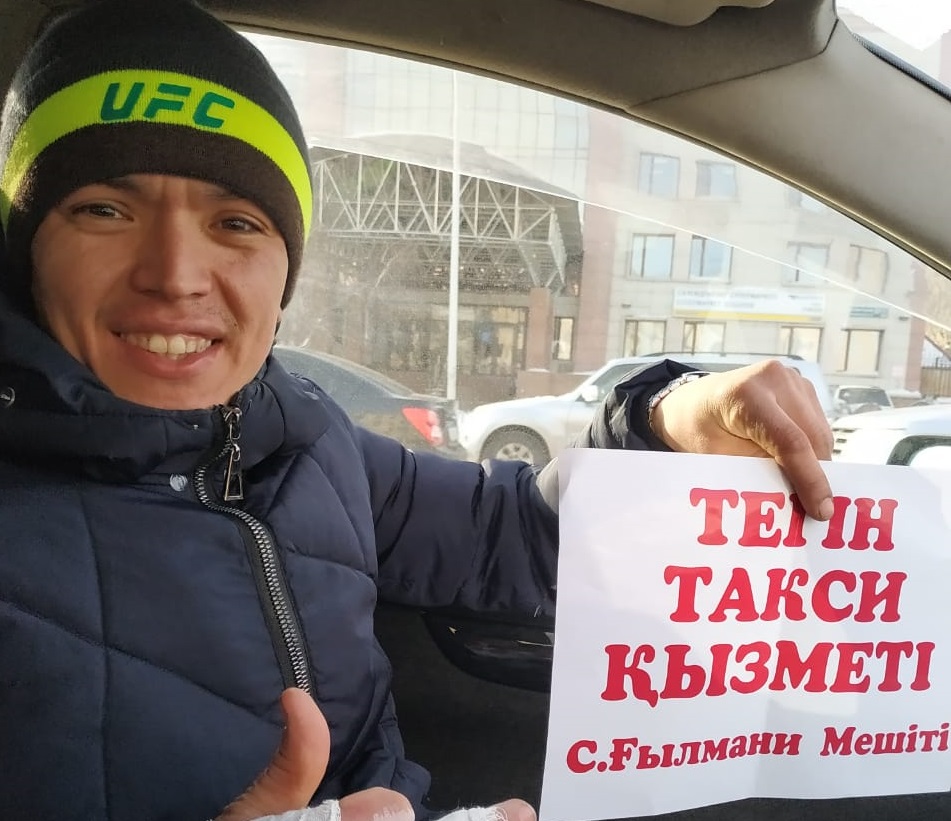 UFC
ТЕГІН
ТАКСИ
ҚЫЗМЕТІ
С.Ғылмани Мешіті